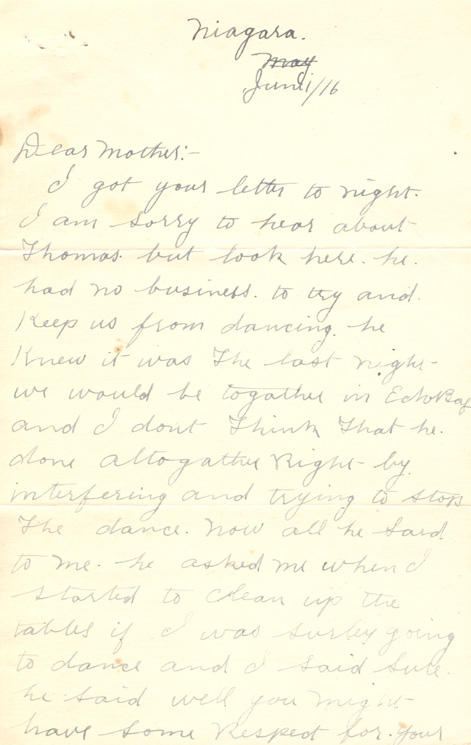 Niagara.
May
June 1/16
Dear Mother:-
I got your letter to night.
I am sorry to hear about
Thomas. but look here. he.
had no business. to try and.
Keep us from dancing. he
Knew it was The last night
we would be togather in Echo Bay
and I dont Think That he.
done altogather Right by
interfering and trying to stop
The dance. Now all he said
to me. he asked me when I
started to clean up the
tables if I was surley going
to dance and I said Sure.
he said well you might
have some Respect for. your